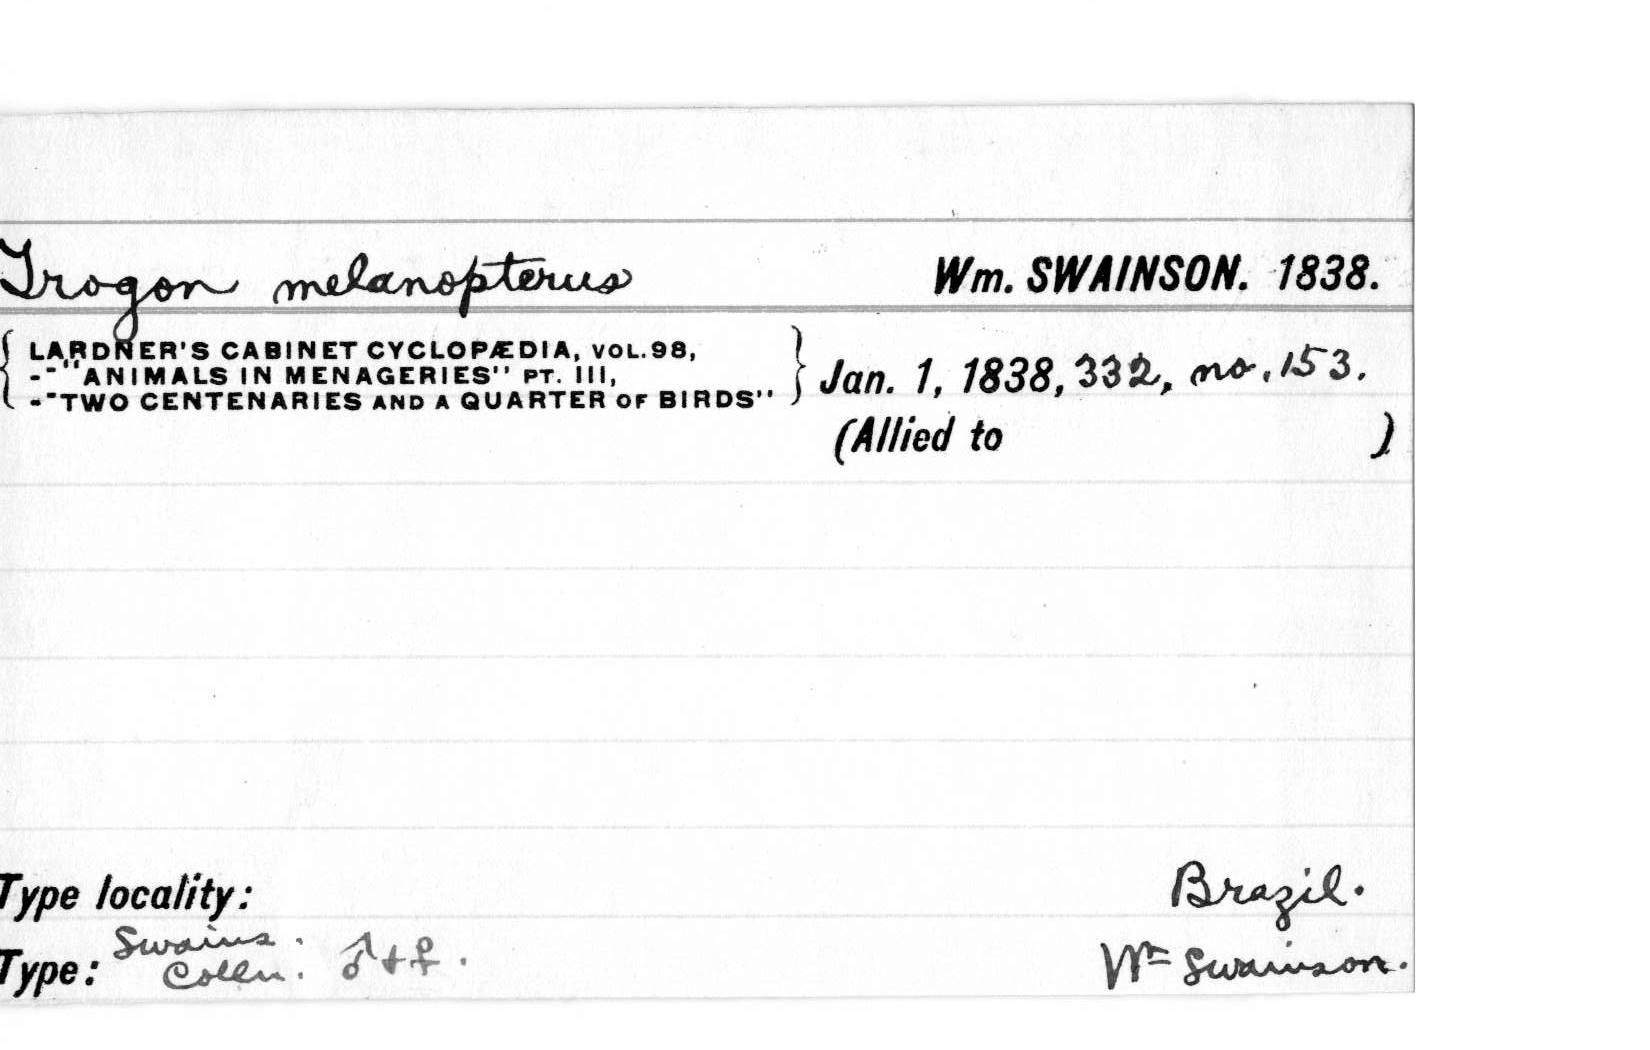 Trogon melanopterus Wm. SWAINSON. 1838.
{ LARDNER'S CABINET CYCLOPÆDIA, VOL. 98,
--"ANIMALS IN MENAGERIES" PT. III,
--"TWO CENTENARIES AND A QUARTER OF BIRDS" } Jan. 1, 1838, 332, no. 153.
(Allied to )
Type locality: Brazil.
Type: Swains. Colln. ♂+♀. Wm Swainson.